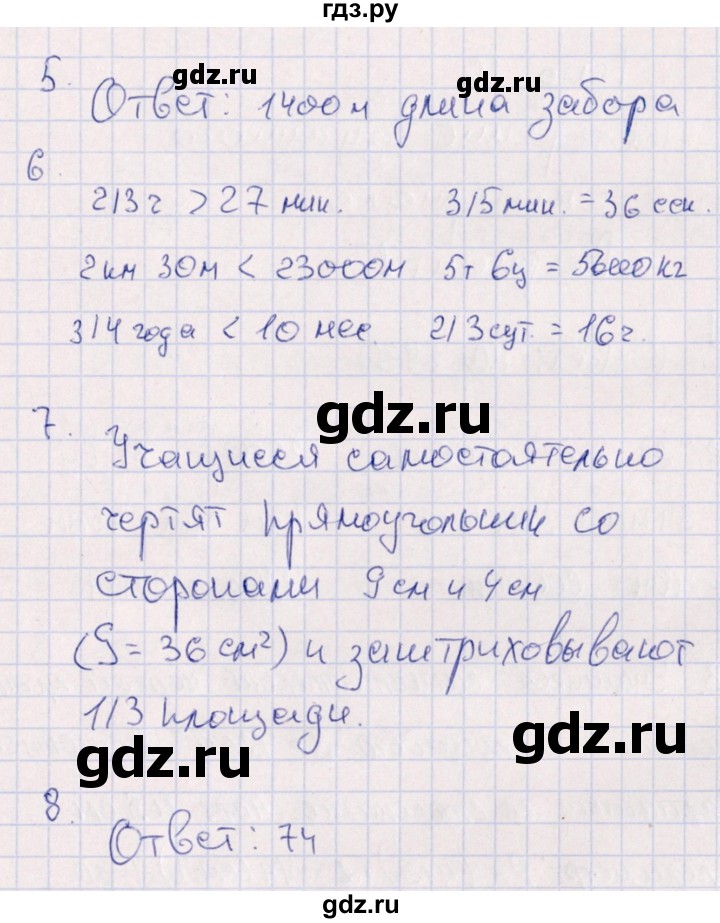 гдз.ру
gdz.ru gdz.ru
5. Ответ: 1400м длина забора
6
2/3ч > 27 мин. 3/5 мин. = 36 сек.
2км 30м < 23000м 5т 6ц = 5600кг
3/4 года < 10 мес. 2/3 сут. = 16ч.
gdz.ru
7. Учащиеся самостоятельно
чертят прямоугольник со
сторонами 9см и 4см
(S = 36 см²) и заштриховывают
1/3 площади.
gdz.ru
gdz.ru
8. Ответ: 74
гдз.ру